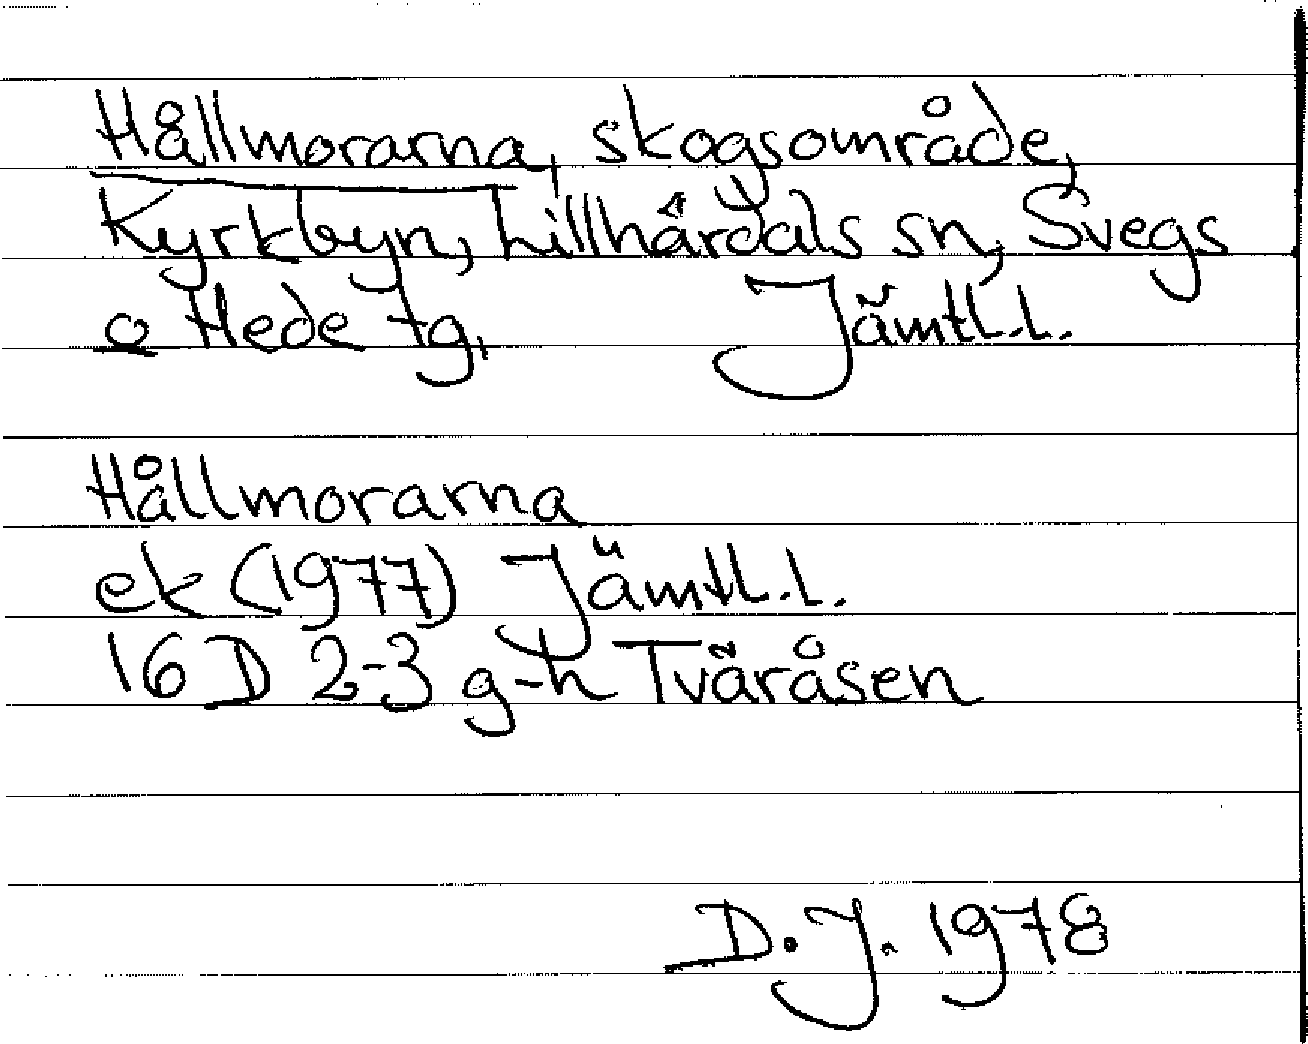 Hållmorarna, skogsområde,
Kyrkbyn, Lillhärdals sn, Svegs
o Hede tg, Jämtl.l.
Hållmorarna
ek (1977) Jämtl.l.
16 D 2-3 g-h Tväråsen
D.J. 1978